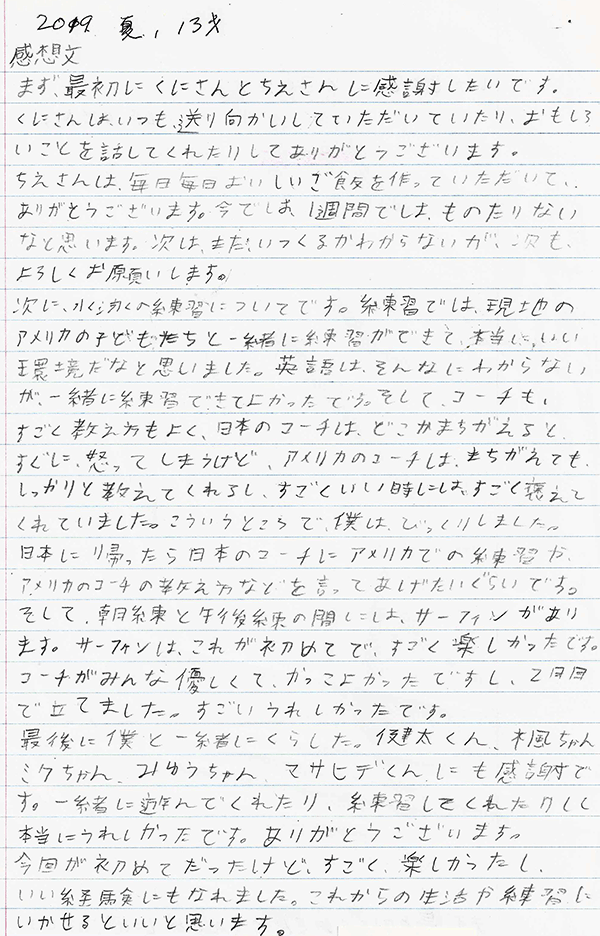 2019 夏, 13才
感想文
まず、最初にくにさんとちえさんに感謝したいです。
くにさんは、いつも、送り向かいしていただいていたり、おもしろ
いことを話してくれたりしてありがとうございます。
ちえさんは、毎日毎日おいしいご飯を作っていただいて、
ありがとうございます。今でしは、1週間でしは、ものたりない
なと思います。次は、まだ、いつくるかわからないが、次も、
よろしくお願いします。
次に、水泳の練習についてです。練習では、現地の
アメリカの子どもたちと一緒に練習ができて、本当に、いい
環境だなと思いました。英語は、そんなにわからない
が、一緒に練習できてよかったです。そして、コーチも、
すごく教え方もよく、日本のコーチは、どこかまちがえると、
すぐに、怒ってしまうけど、アメリカのコーチは、まちがえても、
しっかりと教えてくれるし、すごくいい時には、すごく褒えて
くれていました。こういうところで、僕は、びっくりしました。
日本に帰ったら日本のコーチにアメリカでの練習や、
アメリカのコーチの教え方などを言ってあげたいぐらいです。
そして、朝練と午後練の間には、サーフィンがあり
ます。サーフィンは、これが初めてで、すごく楽しかったです。
コーチがみんな優しくて、かっこよかったですし、2日目
で立てました。すごいうれしかったです。
最後に僕と一緒にくらした。健太くん、楓ちゃん
ミクちゃん、みゆうちゃん、マサヒデくん、にも感謝で
す。一緒に遊んでくれたり、練習してくれたりしく
本当にうれしかったです。ありがとうございます。
今回が初めてだったけど、すごく、楽しかったし、
いい経験にもなれました。これからの生活や練習に
いかせるといいと思います。